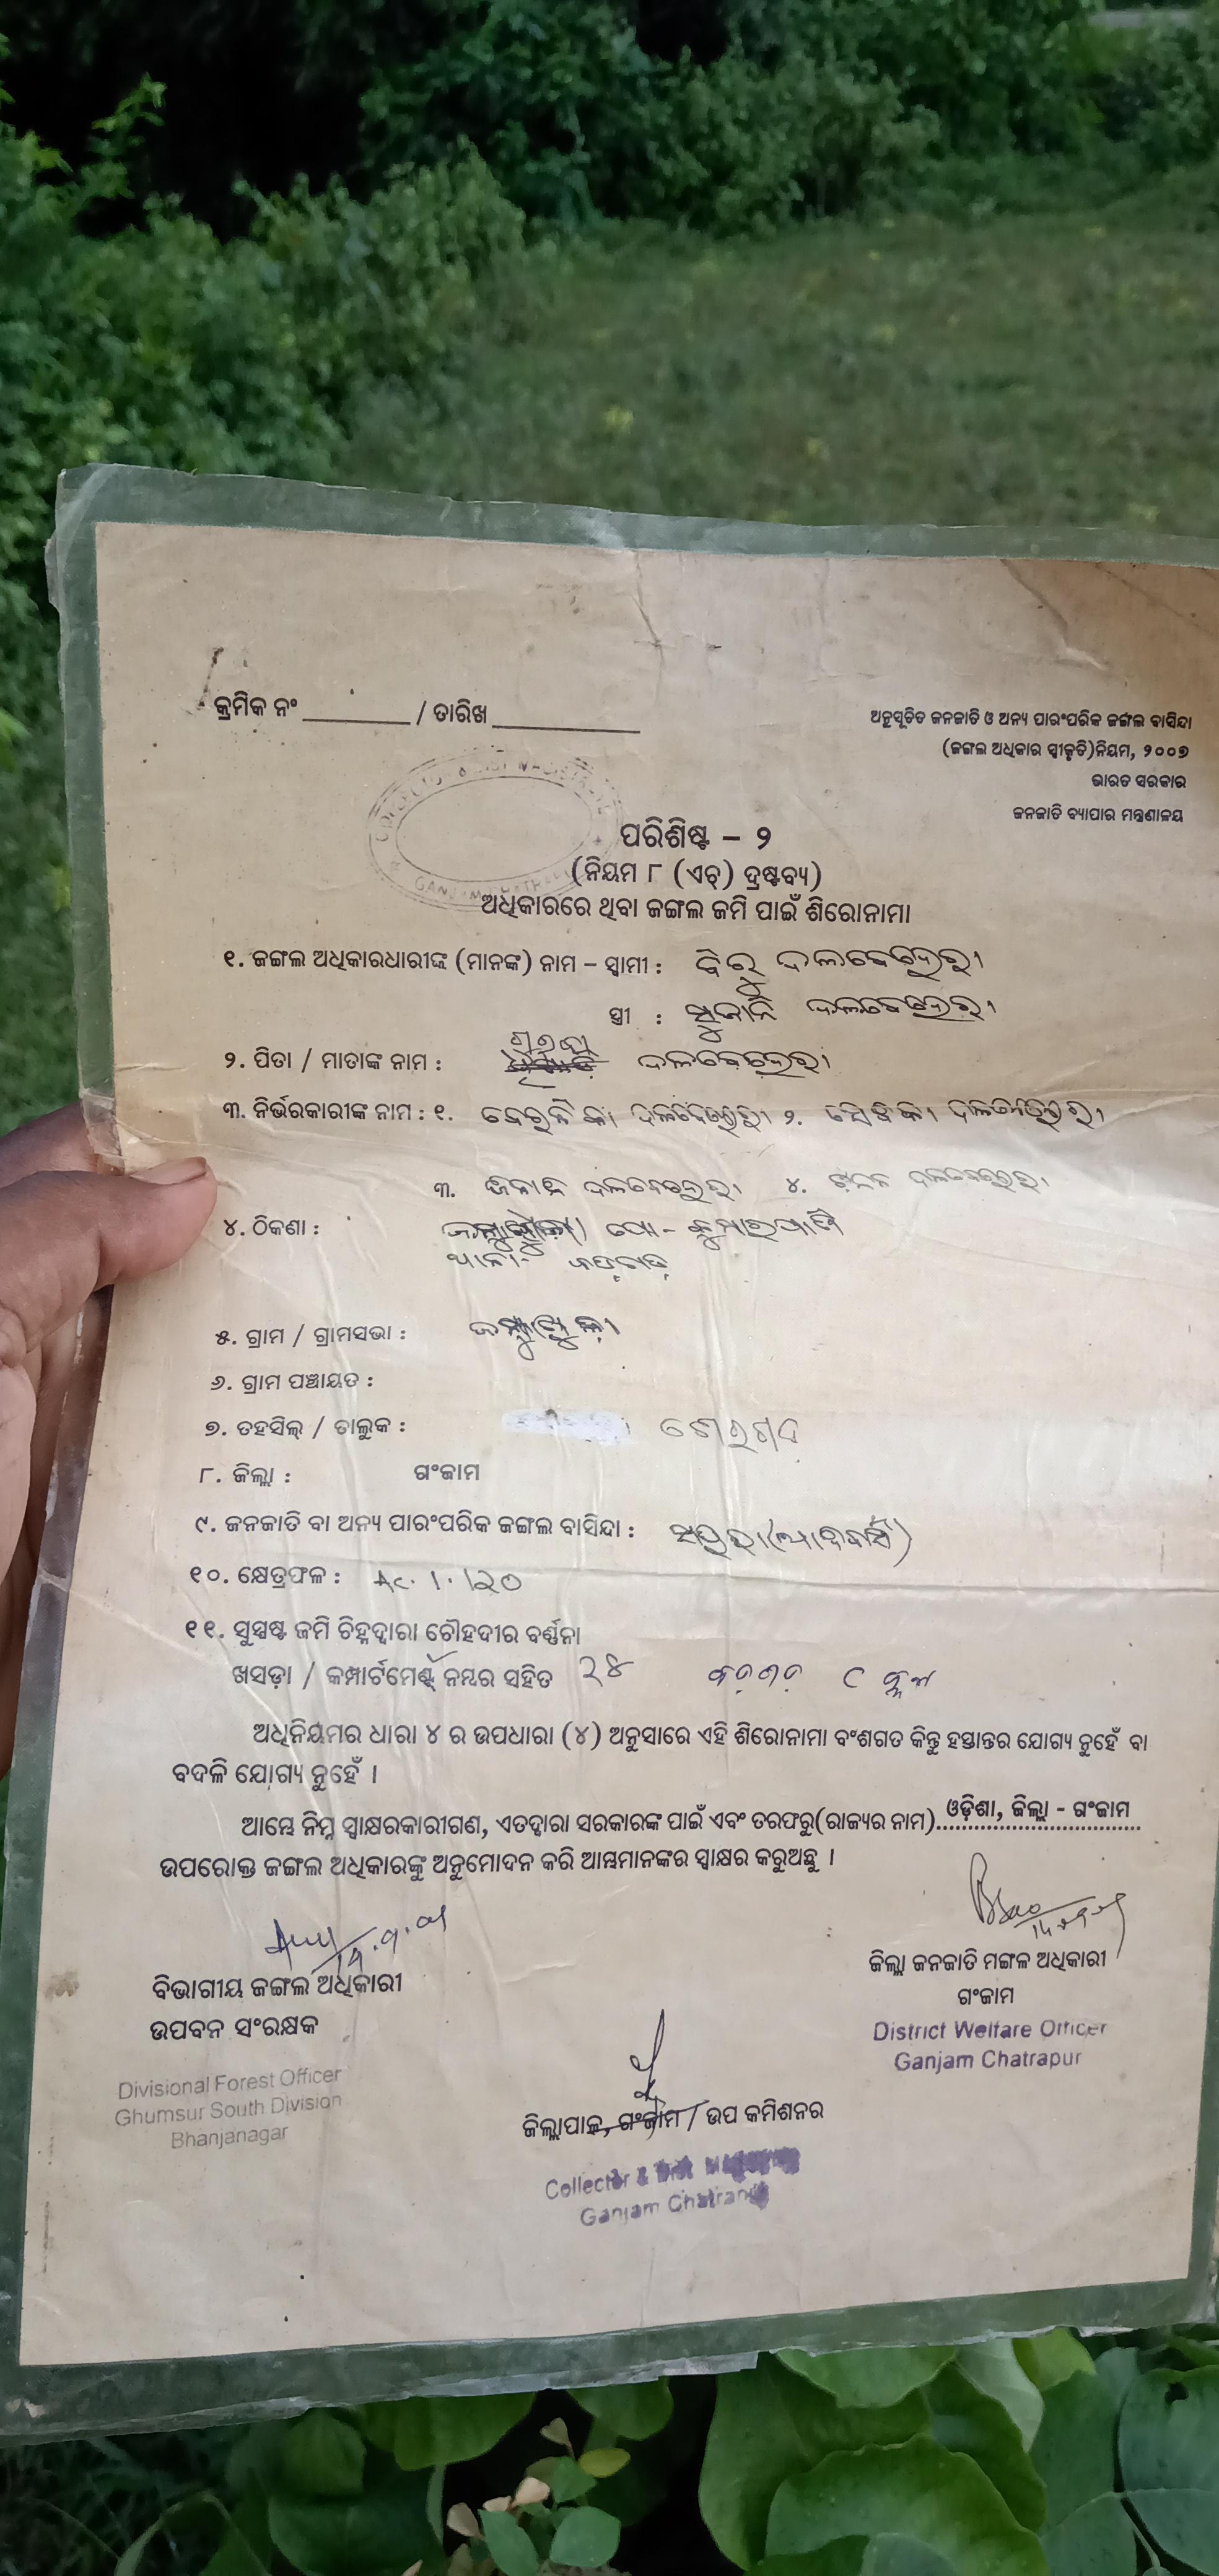 କ୍ରମିକ ନଂ ________ / ତାରିଖ ___________
ଅନୁସୂଚିତ ଜନଜାତି ଓ ଅନ୍ୟ ପାରଂପରିକ ଜଙ୍ଗଲ ବାସିନ୍ଦା
(ଜଙ୍ଗଲ ଅଧିକାର ସ୍ୱୀକୃତି)ନିୟମ, ୨୦୦୭
ଭାରତ ସରକାର
ଜନଜାତି ବ୍ୟାପାର ମନ୍ତ୍ରଣାଳୟ
ପରିଶିଷ୍ଟ – ୨
(ନିୟମ ୮ (ଏଚ୍) ଦ୍ରଷ୍ଟବ୍ୟ)
ଅଧିକାରରେ ଥିବା ଜଙ୍ଗଲ ଜମି ପାଇଁ ଶିରୋନାମା
୧. ଜଙ୍ଗଲ ଅଧିକାରଧାରୀଙ୍କ (ମାନଙ୍କ) ନାମ – ସ୍ୱାମୀ : ବିରୁ ଦଳବେହେରା
ସ୍ତ୍ରୀ : ଦଳବେହେରା
୨. ପିତା / ମାତାଙ୍କ ନାମ : ଦଳବେହେରା
୩. ନିର୍ଭରକାରୀଙ୍କ ନାମ : ୧. ଦଳବେହେରା ୨. ଦଳବେହେରା
୩. ଦଳବେହେରା ୪. ଦଳବେହେରା
୪. ଠିକଣା : ପୋ-
ଥାନା-
୫. ଗ୍ରାମ / ଗ୍ରାମସଭା :
୬. ଗ୍ରାମ ପଞ୍ଚାୟତ :
୭. ତହସିଲ୍ / ତାଲୁକ : ଶେରଗଡ
୮. ଜିଲ୍ଲା : ଗଂଜାମ
୯. ଜନଜାତି ବା ଅନ୍ୟ ପାରଂପରିକ ଜଙ୍ଗଲ ବାସିନ୍ଦା : (ଆଦିବାସୀ)
୧୦. କ୍ଷେତ୍ରଫଳ : Ac. 1. 120
୧୧. ସୁସ୍ପଷ୍ଟ ଜମି ଚିହ୍ନଦ୍ୱାରା ଚୌହଦୀର ବର୍ଣ୍ଣନା
ଖସଡ଼ା / କମ୍ପାର୍ଟମେଣ୍ଟ୍ ନମ୍ବର ସହିତ ୨୪
ଅଧିନିୟମର ଧାରା ୪ ର ଉପଧାରା (୪) ଅନୁସାରେ ଏହି ଶିରୋନାମା ବଂଶଗତ କିନ୍ତୁ ହସ୍ତାନ୍ତର ଯୋଗ୍ୟ ନୁହେଁ ବା
ବଦଳି ଯୋଗ୍ୟ ନୁହେଁ ।
ଆମ୍ଭେ ନିମ୍ନ ସ୍ୱାକ୍ଷରକାରୀଗଣ, ଏତଦ୍ୱାରା ସରକାରଙ୍କ ପାଇଁ ଏବଂ ତରଫରୁ(ରାଜ୍ୟର ନାମ) ଓଡ଼ିଶା, ଜିଲ୍ଲା - ଗଂଜାମ
ଉପରୋକ୍ତ ଜଙ୍ଗଲ ଅଧିକାରଙ୍କୁ ଅନୁମୋଦନ କରି ଆମ୍ଭମାନଙ୍କର ସ୍ୱାକ୍ଷର କରୁଅଛୁ ।
ବିଭାଗୀୟ ଜଙ୍ଗଲ ଅଧିକାରୀ
ଉପବନ ସଂରକ୍ଷକ
Divisional Forest Officer
Ghumsur South Division
Bhanjanagar
ଜିଲ୍ଲା ଜନଜାତି ମଙ୍ଗଳ ଅଧିକାରୀ
ଗଂଜାମ
District Welfare Officer
Ganjam Chatrapur
ଜିଲ୍ଲାପାଳ, ଗଂଜାମ / ଉପ କମିଶନର
Collector &
Ganjam